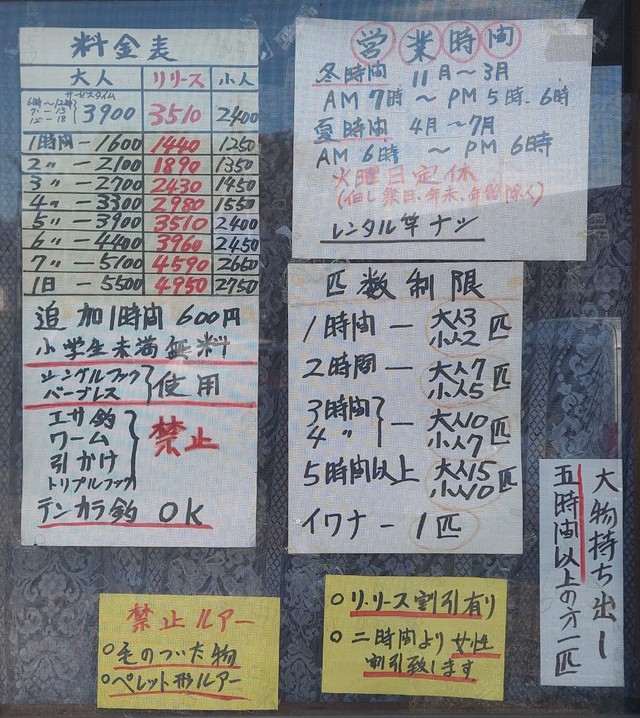 料金表
大人 リリース 小人
サービスタイム
6時〜12時
7〃-13
12-18
3900 3510 2400
1時間-1600 1440 1250
2〃-2100 1890 1350
3〃-2700 2430 1450
4〃-3300 2980 1550
5〃-3900 3510 2400
6〃-4400 3960 2450
7〃-5100 4590 2660
1日-5500 4950 2750
追加1時間 600円
小学生未満無料
シングルフック
バーブレス
使用
エサ釣
ワーム
引かけ
トリプルフック
禁止
テンカラ釣 OK
営業時間
冬時間 11月〜3月
AM7時〜PM5時.6時
夏時間 4月〜7月
AM6時〜PM6時
火曜日定休
(但し祭日、年末、年始除く)
レンタル竿ナシ
匹数制限
1時間ー大人3小人2匹
2時間ー大人7小人5匹
3時間
4〃
ー大人10小人7匹
5時間以上 大人15小人10匹
イワナー1匹
大物持ち出し
五時間以上の方一匹
禁止ルアー
○毛のついた物
○ペレット形ルアー
○リリース割引有り
○二時間より女性
割引致します